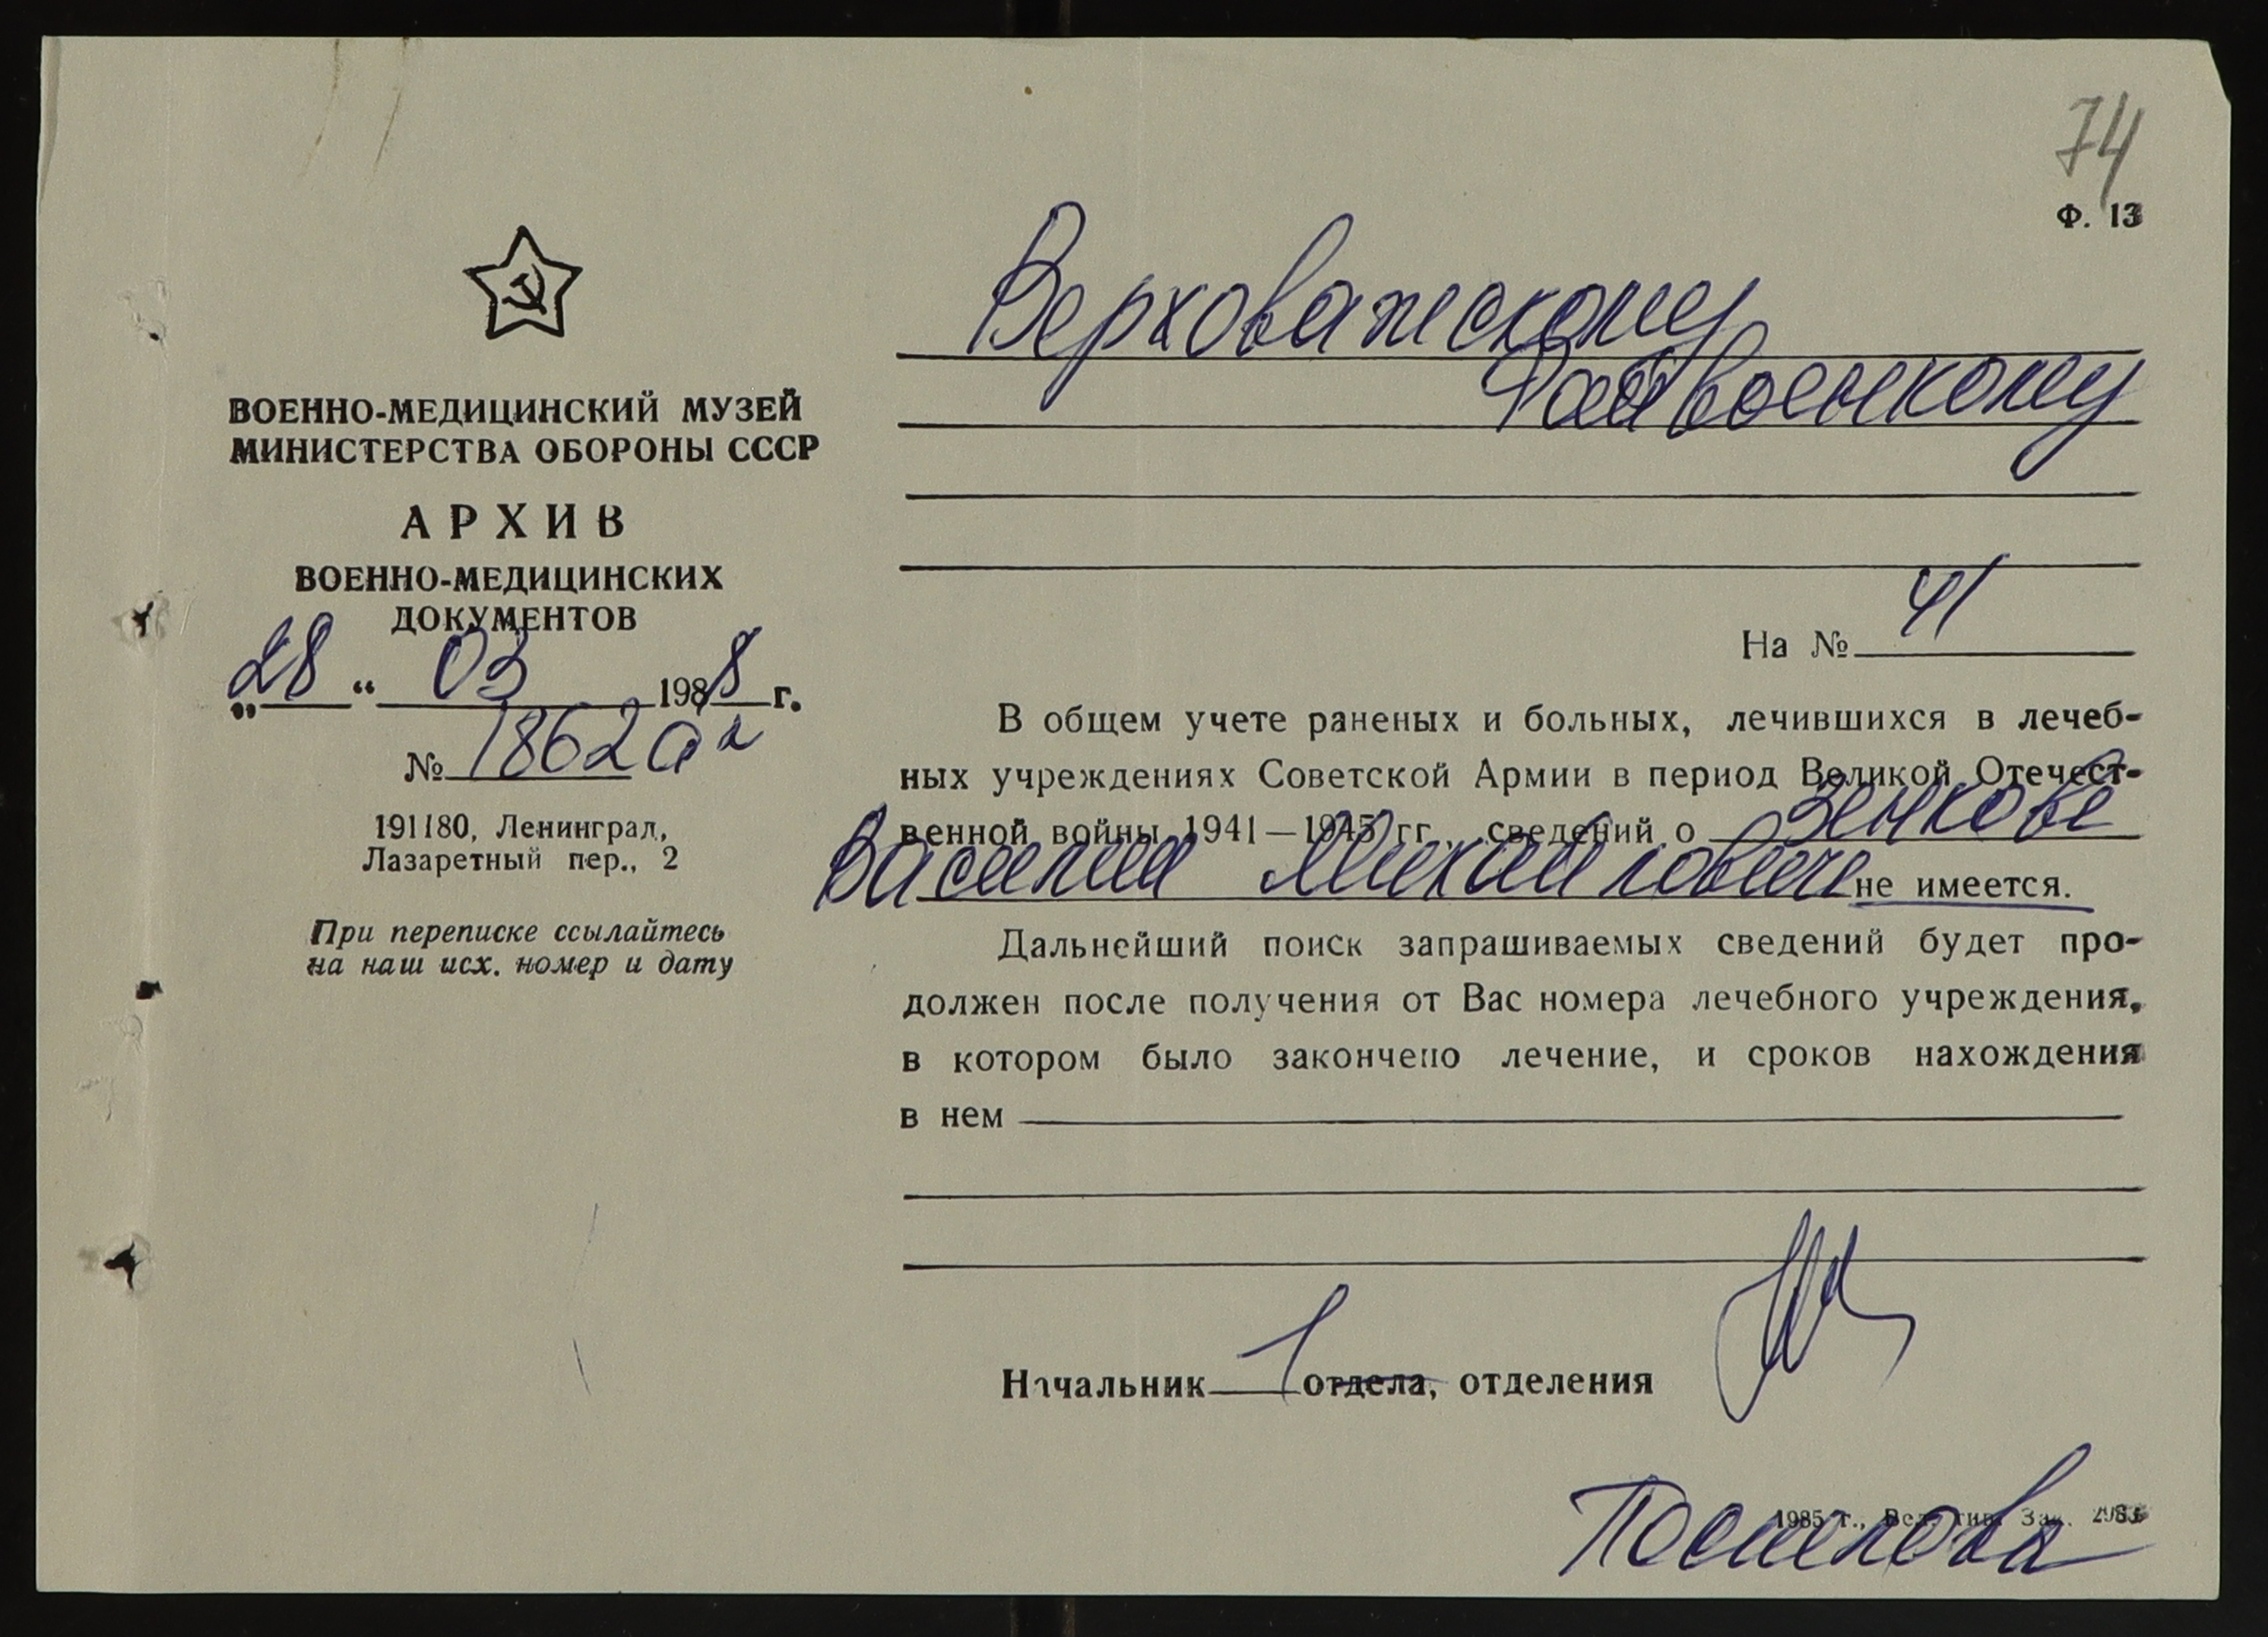 74
Ф. 13
ВОЕННО-МЕДИЦИНСКИЙ МУЗЕЙ
МИНИСТЕРСТВА ОБОРОНЫ СССР
АРХИВ
ВОЕННО-МЕДИЦИНСКИХ
ДОКУМЕНТОВ
„28“ 03 1988 г.
№ 1862
191180, Ленинград,
Лазаретный пер., 2
При переписке ссылайтесь
на наш исх. номер и дату
Верховажскому
Райвоенкому
На № 41
В общем учете раненых и больных, лечившихся в лечеб-
ных учреждениях Советской Армии в период Великой Отечест-
венной войны 1941—1945 гг., сведений о Зенкове
Василии Михайловиче не имеется.
Дальнейший поиск запрашиваемых сведений будет про-
должен после получения от Вас номера лечебного учреждения,
в котором было закончено лечение, и сроков нахождения
в нем
Начальник 1 отдела, отделения
1985 г., Зак.